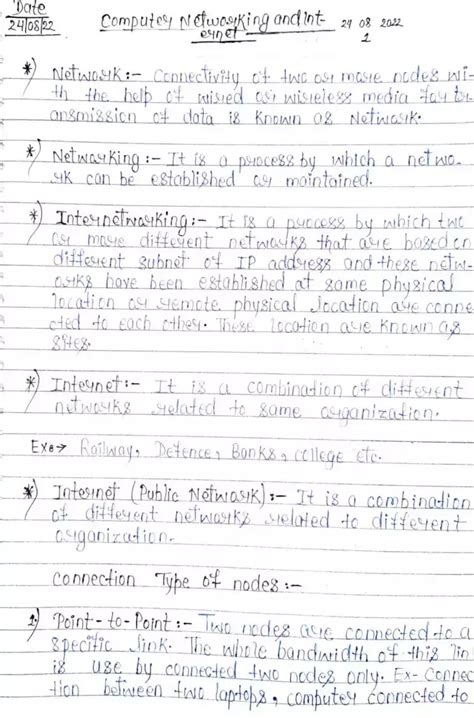 Date
24/08/22
Computer Networking and Int
ernet
24 08 2022
1
*) Network:- Connectivity of two or more nodes wi-
th the help of wired or wireless media for tr
ansmission of data is known as Network.
*) Networking:- It is a process by which a netwo-
rk can be established or maintained.
*) Internetworking:- It is a process by which two
or more different networks that are based on
different subnet of IP address and these netw-
orks have been established at same physical
location or remote physical location are conne
cted to each other. These location are known as
sites.
*) Internet:- It is a combination of different
networks related to same organization.
Ex→ Railway, Defence, Banks, college etc.
*) Internet (Public Network):- It is a combination
of different networks related to different
organization.
connection Type of nodes:-
1) Point-to-Point:- Two nodes are connected to a
specific link. The whole bandwidth of this lin
is use by connected two nodes only. Ex- Connec
tion between two laptops, computer connected to